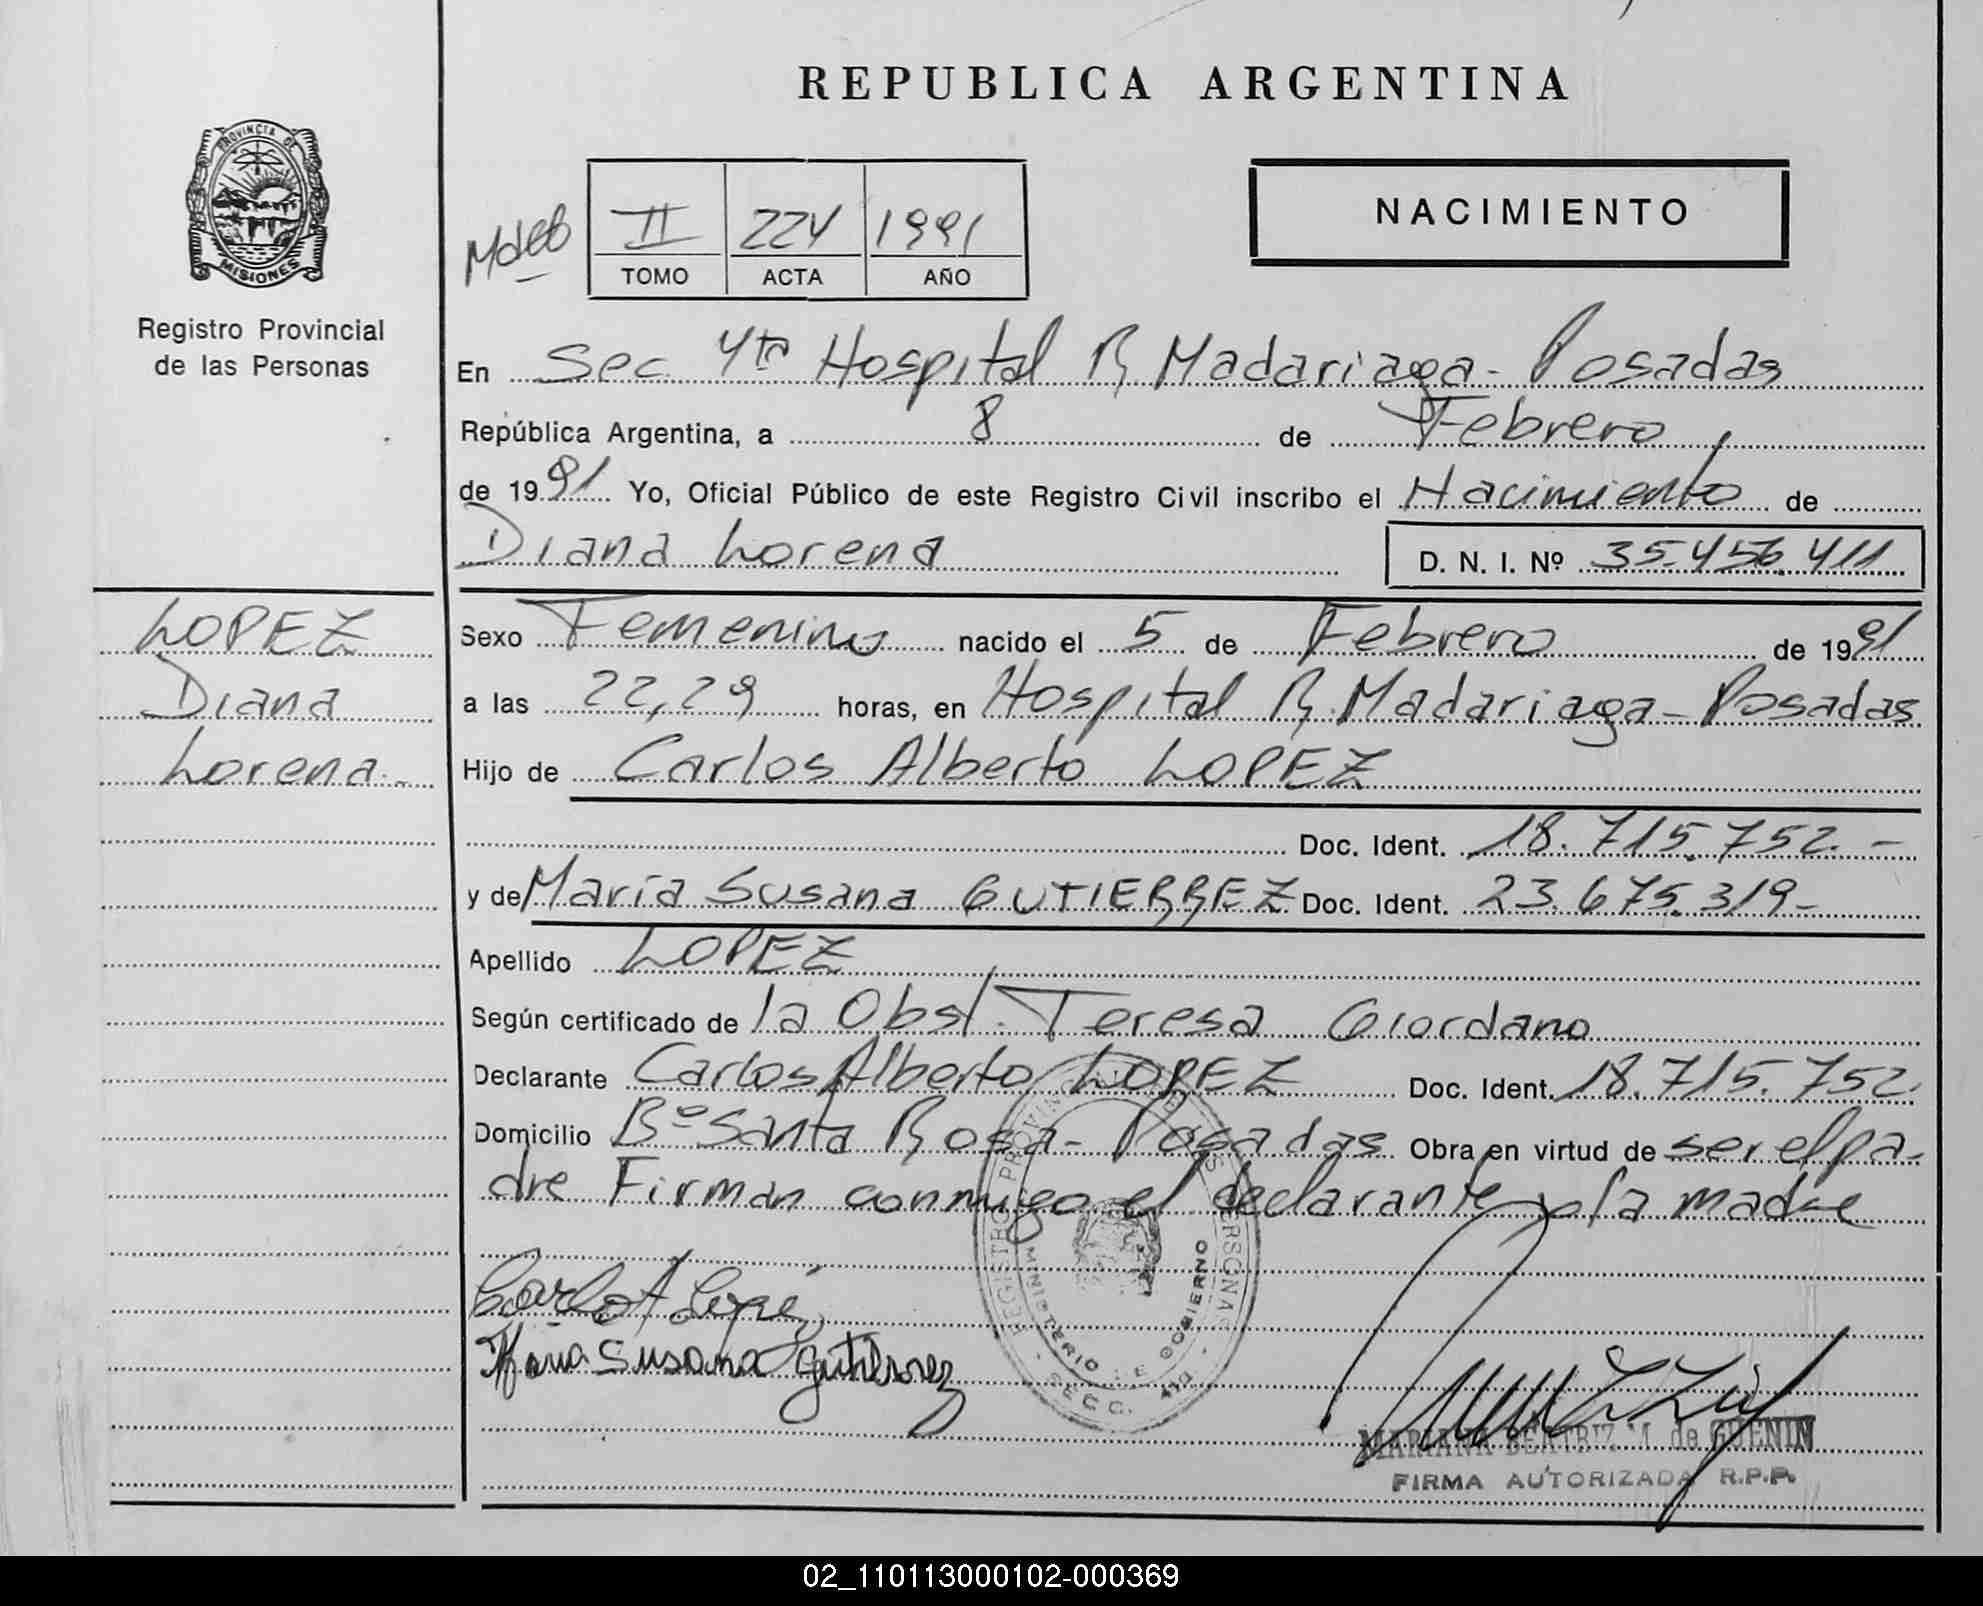 REPUBLICA ARGENTINA
PROVINCIA DE
MISIONES
Registro Provincial
de las Personas
NACIMIENTO
II 224 1991
TOMO ACTA AÑO
En Sec. 4ta Hospital R. Madariaga - Posadas
República Argentina, a 8 de Febrero
de 1991 Yo, Oficial Público de este Registro Civil inscribo el Nacimiento de
Diana Lorena D. N. I. Nº 35.456.411
LOPEZ
Diana
Lorena.-
Sexo Femenino nacido el 5 de Febrero de 1991
a las 22,29 horas, en Hospital R. Madariaga - Posadas
Hijo de Carlos Alberto LOPEZ
Doc. Ident. 18.715.752.-
y de María Susana GUTIERREZ Doc. Ident. 23.675.319-
Apellido LOPEZ
Según certificado de la Obst. Teresa Giordano
Declarante Carlos Alberto LOPEZ Doc. Ident. 18.715.752.
Domicilio Bº Santa Rosa - Posadas Obra en virtud de ser el pa-
dre Firman conmigo el declarante y la madre
Carlos A López
María Susana Gutierrez
REGISTRO PROVINCIAL DE LAS PERSONAS
MINISTERIO DE GOBIERNO
SECC. 4ta
MARIANA BEATRIZ M. de GUENIN
FIRMA AUTORIZADA R.P.P.
02_110113000102-000369